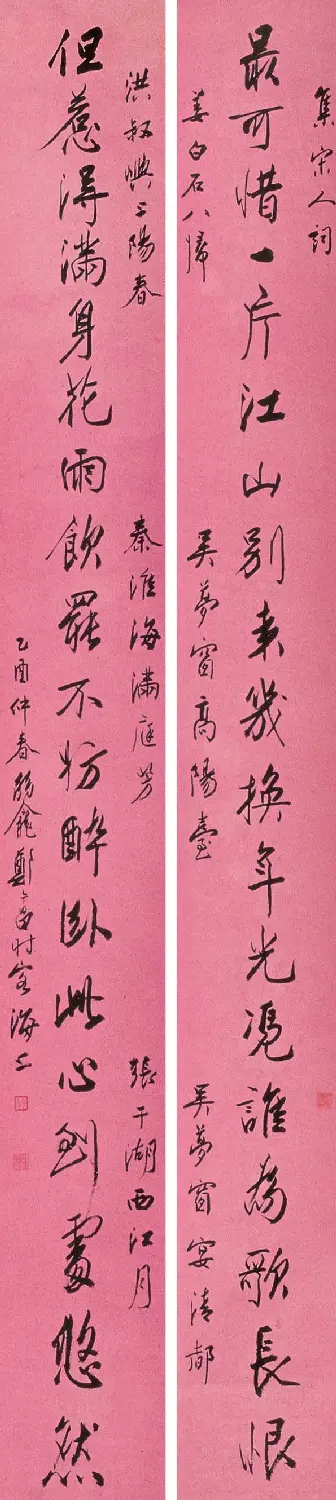 集宋人詞
最可惜一片江山別來幾換年光憑誰為歌長恨
姜白石八歸
吳夢窗高陽臺
吳夢窗宴清都
但惹得滿身花雨飲罷不妨醉臥此心到處悠然
洪叔 陽春
秦淮海滿庭芳
張于湖西江月
乙酉仲春 鄭 時客海上